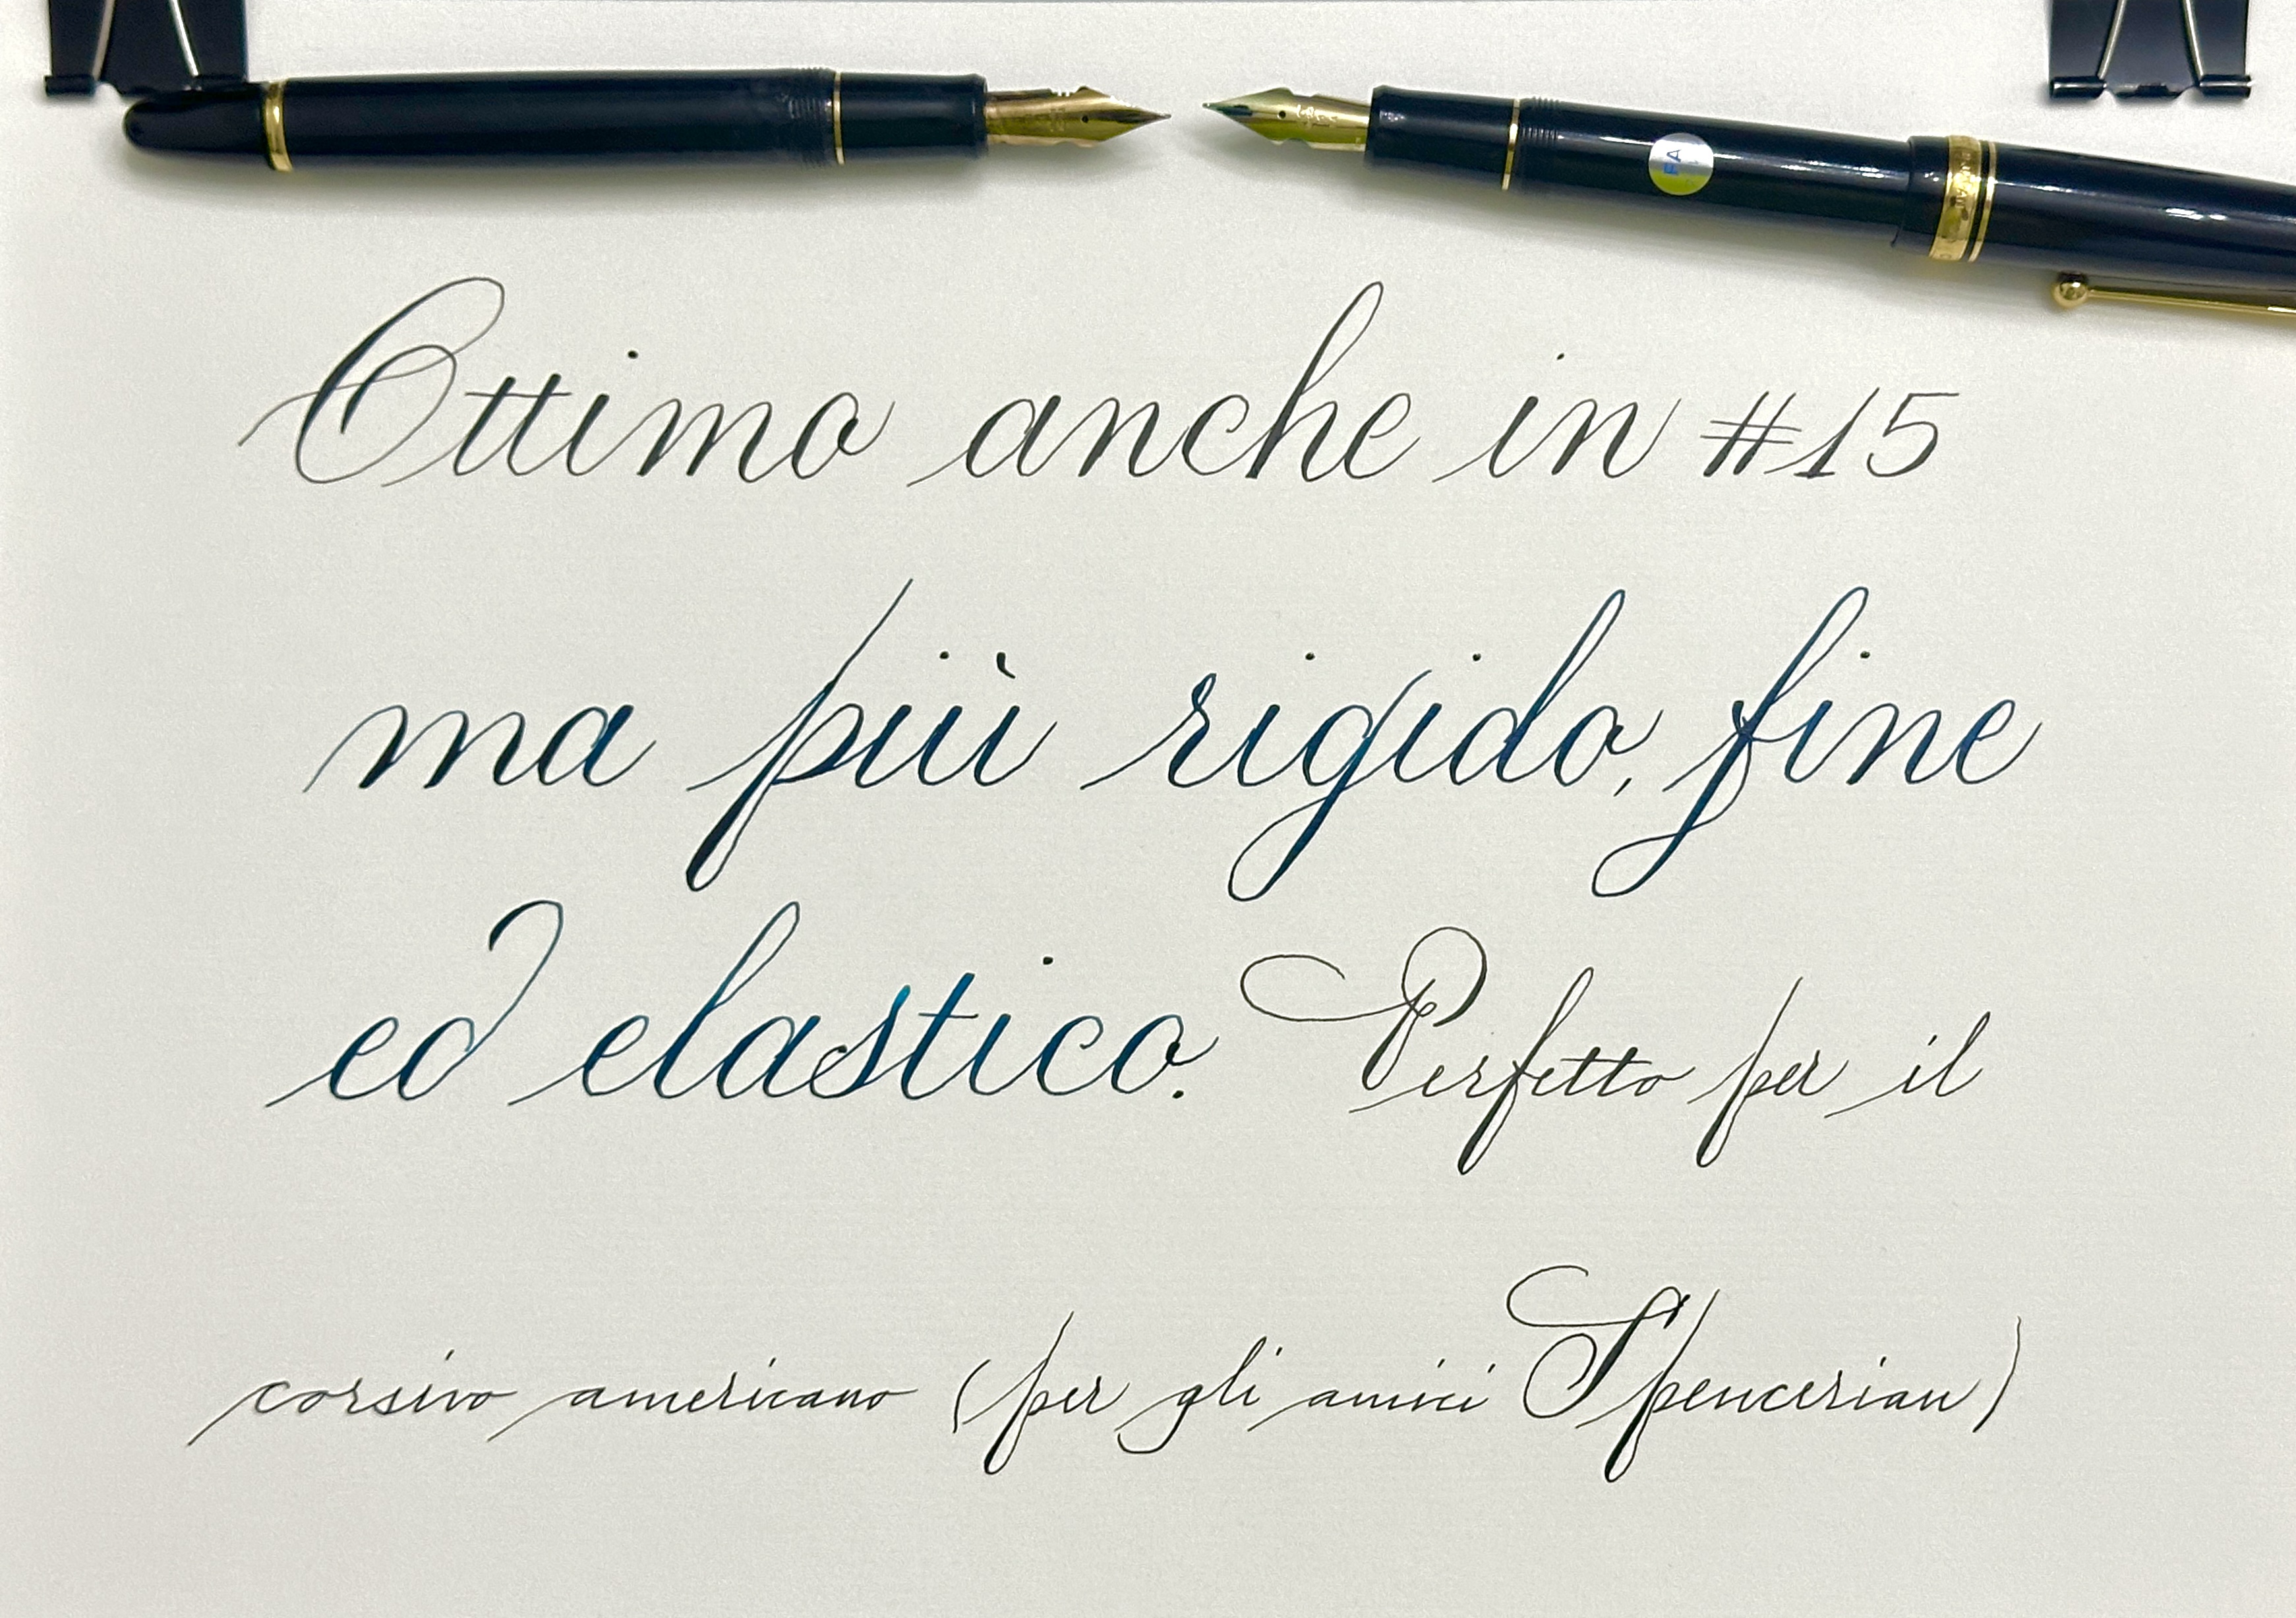 FA
Ottimo anche in #15
ma più rigido, fine
ed elastico. Perfetto per il
corsivo americano (per gli amici Spencerian)